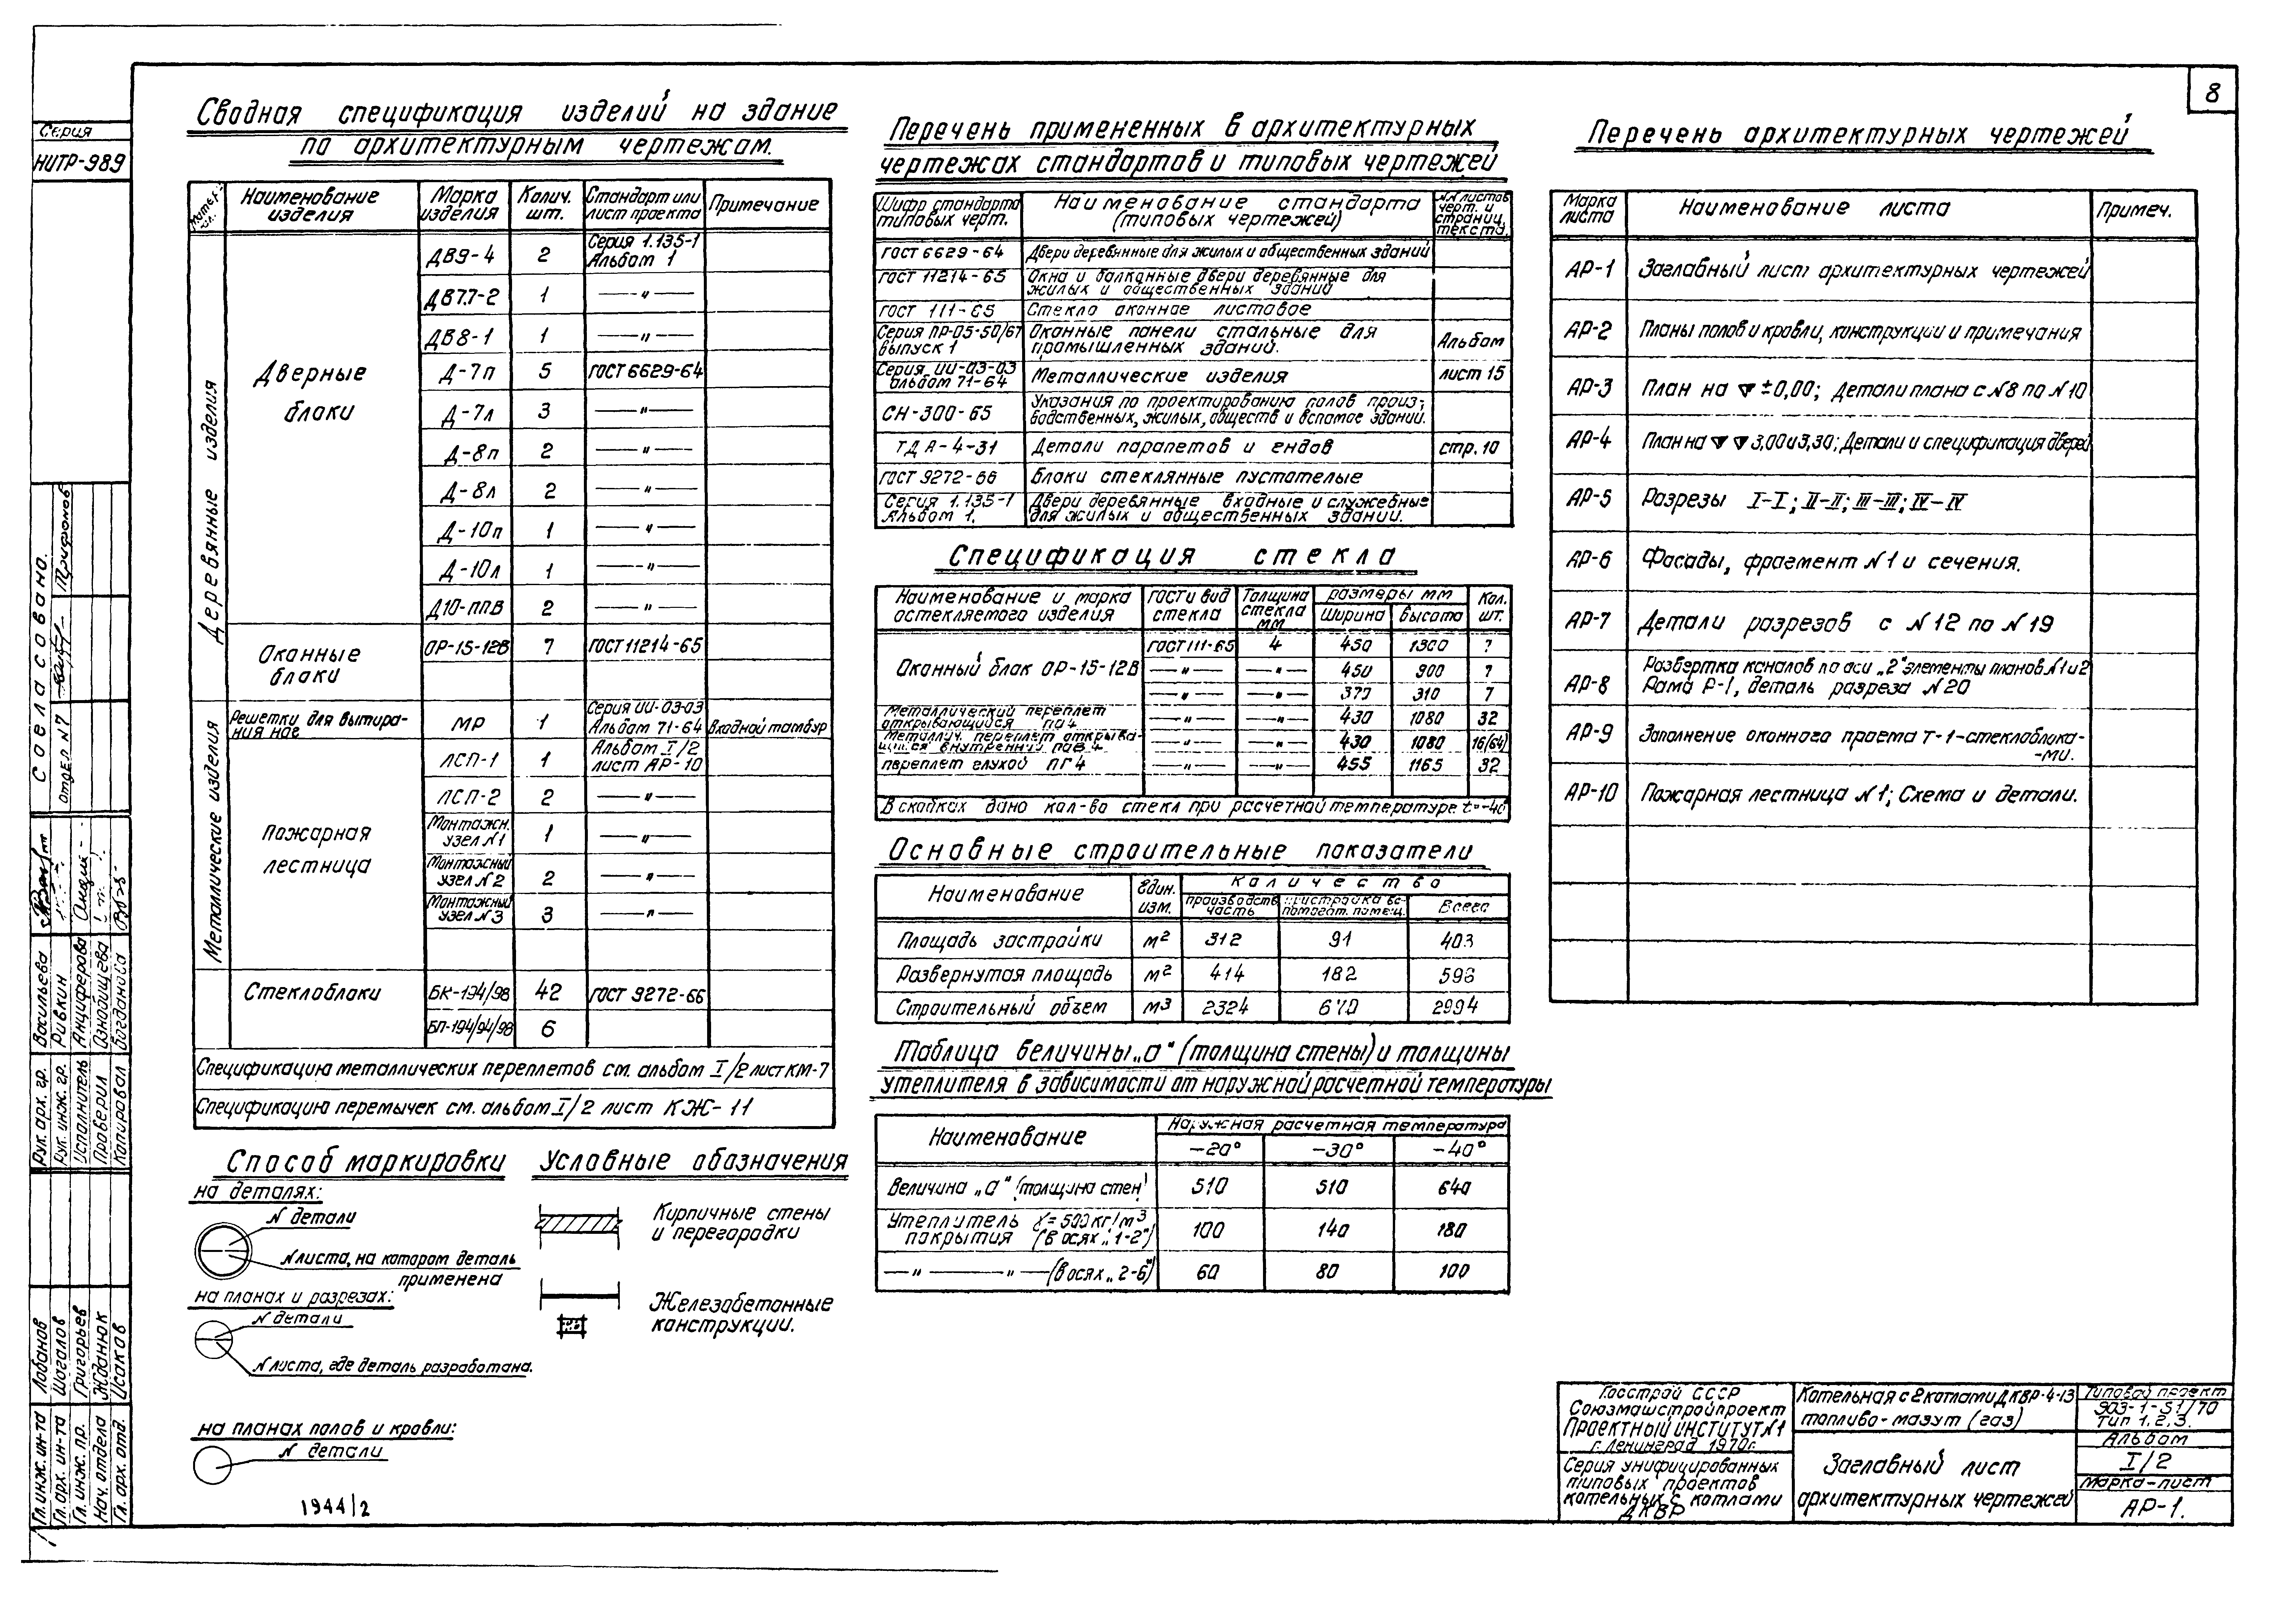 8
Серия
НИТР-989
Сводная спецификация изделий на здание
по архитектурным чертежам.
Наименование изделия | Марка изделия | Колич. шт. | Стандарт или лист проекта | Примечание
Деревянные изделия
Дверные блоки
ДВ9-4 | 2 | Серия 1.135-1 Альбом 1
ДВ7.7-2 | 1 | —"—
ДВ8-1 | 1 | —"—
Д-7п | 5 | ГОСТ 6629-64
Д-7л | 3 | —"—
Д-8п | 2 | —"—
Д-8л | 2 | —"—
Д-10п | 1 | —"—
Д-10л | 1 | —"—
Д10-ппв | 2 | —"—
Оконные блоки | ОР-15-12В | 7 | ГОСТ 11214-65
Металлические изделия
Решетки для вытирания ног | МР | 1 | Серия ИИ-03-03 Альбом 71-64 | Входной тамбур
Пожарная лестница
ЛСП-1 | 1 | Альбом I/2 лист АР-10
ЛСП-2 | 2 | —"—
Монтажн. узел N1 | 1 | —"—
Монтажный узел N2 | 2 | —"—
Монтажный узел N3 | 3 | —"—
Стеклоблоки | БК-194/98 | 42 | ГОСТ 9272-66
БП-194/94/98 | 6
Спецификацию металлических переплетов см. альбом I/2 лист КМ-7
Спецификацию перемычек см. альбом I/2 лист КЖ-11
Способ маркировки
на деталях:
N детали
N листа, на котором деталь
применена
на планах и разрезах:
N детали
N листа, где деталь разработана.
на планах полов и кровли:
N детали
1944/2
Условные обозначения
Кирпичные стены
и перегородки
Железобетонные
конструкции.
Перечень примененных в архитектурных
чертежах стандартов и типовых чертежей
Шифр стандарта типовых черт. | Наименование стандарта (типовых чертежей) | NN листов черт. и страниц текста.
ГОСТ 6629-64 | Двери деревянные для жилых и общественных зданий
ГОСТ 11214-65 | Окна и балконные двери деревянные для жилых и общественных зданий
ГОСТ 111-65 | Стекло оконное листовое
Серия ПР-05-50/67 выпуск 1 | Оконные панели стальные для промышленных зданий. | Альбом
Серия ИИ-03-03 альбом 71-64 | Металлические изделия | лист 15
СН-300-65 | Указания по проектированию полов производственных, жилых, обществ и вспомог зданий.
ТДА-4-31 | Детали парапетов и ендов | стр. 10
ГОСТ 9272-66 | Блоки стеклянные пустотелые
Серия 1.135-1 Альбом 1. | Двери деревянные входные и служебные для жилых и общественных зданий.
Спецификация стекла
Наименование и марка остекляемого изделия | ГОСТ и вид стекла | Толщина стекла мм | размеры мм | Кол. шт.
Ширина | высота
Оконный блок ОР-15-12В | ГОСТ 111-65 | 4 | 450 | 1300 | 7
—"— | —"— | 450 | 900 | 7
—"— | —"— | 370 | 310 | 7
Металлический переплет открывающийся ПО4 | —"— | —"— | 430 | 1080 | 32
Металлич. переплет открывающийся внутренний ПОВ 4 | —"— | —"— | 430 | 1080 | 16(64)
переплет глухой ПГ4 | —"— | —"— | 455 | 1165 | 32
В скобках дано кол-во стекл при расчетной температуре t=-40°
Основные строительные показатели
Наименование | Един. изм. | Количество
производств часть | пристройка вспомогат. помещ. | Всего
Площадь застройки | м² | 312 | 91 | 403
Развернутая площадь | м² | 414 | 182 | 596
Строительный объем | м³ | 2324 | 670 | 2994
Таблица величины „а" (толщина стены) и толщины
утеплителя в зависимости от наружной расчетной температуры
Наименование | Наружная расчетная температура
-20° | -30° | -40°
Величина „а" (толщина стен) | 510 | 510 | 640
Утеплитель покрытия γ=500кг/м³ (в осях „1-2") | 100 | 140 | 180
—"— —"— (в осях „2-6") | 60 | 80 | 100
Перечень архитектурных чертежей
Марка листа | Наименование листа | Примеч.
АР-1 | Заглавный лист архитектурных чертежей
АР-2 | Планы полов и кровли, конструкции и примечания
АР-3 | План на ▽ ±0,00; Детали плана с N8 по N10
АР-4 | План на ▽▽ 3,00 и 3,30; Детали и спецификация дверей
АР-5 | Разрезы I-I; II-II; III-III; IV-IV
АР-6 | Фасады, фрагмент N1 и сечения.
АР-7 | Детали разрезов с N12 по N19
АР-8 | Развертка каналов по оси „2" элементы планов N1 и 2 Рама Р-1, деталь разреза N20
АР-9 | Заполнение оконного проема Т-1-стеклоблока--ми.
АР-10 | Пожарная лестница N1; Схема и детали.
Госстрой СССР
Союзмашстройпроект
Проектный институт N1
г. Ленинград 1970г.
Серия унифицированных
типовых проектов
котельных с котлами
ДКВР
Котельная с 2 котлами ДКВР-4-13
топливо-мазут (газ)
Заглавный лист
архитектурных чертежей
Типовой проект
903-1-51/70
Тип 1.2.3.
Альбом
I/2
Марка-лист
АР-1.
Согласовано.
Отдел N7
Рук. арх. гр. Васильева
Рук. инж. гр. Ривкин
Исполнитель Анцуферова
Проверил Ознобищева
Копировал Богданова
Гл. инж. ин-та Лобанов
Гл. арх. ин-та Шагалов
Гл. инж. пр. Григорьев
Нач. отдела Жданюк
Гл. арх. отд. Исаков